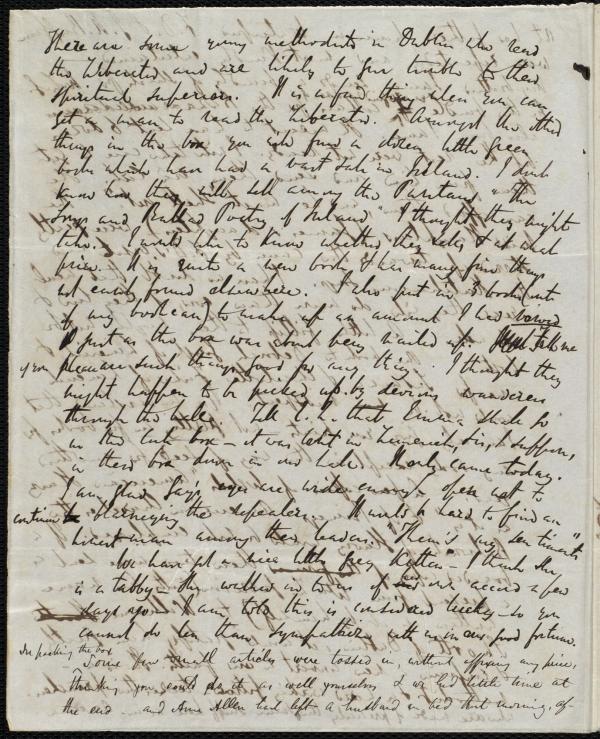 There are some young methodists in Dublin who read
the Liberator and are likely to give trouble to their
spiritual superiors. It is a good thing when you can
get a man to read the Liberator. Amongst the other
things in the box you will find a dozen little green
books which have had a vast sale in Ireland. I don't
know how they will sell among the Puritans, "The
Songs and Ballad Poetry of Ireland" I thought they might
take. I would like to know whether they sell, & at what
price. It is quite a new book, & has many fine things
not easily found elsewhere. I also put in 3 books (out
of my bookcase) to make up an amount I had
just as the box was about being nailed up. Tell me
if you please are such things good for any thing. I thought they
might happen to be picked up by devious wanderers
through the hall. Tell that Emma
in the box - it was in Limerick, I suppose,
in there box down in and late. It only came today.
I am glad eyes are wide enough open not to
continue blarneying the repealers. It would be hard to find an
honest man among their leaders. "Them's my sentiments"
We have got a nice little grey Kitten - I think she
is a tabby - She walked in to us of her own accord a few
days ago - I am told this is considered lucky - so you
cannot do less than sympathise with us in our good fortune.
In packing the box
Some few small articles were tossed in, without affixing any price,
thinking you could do it as well yourselves & we had little time at
the end - and Anne Allen had left a husband in bed that morning, of